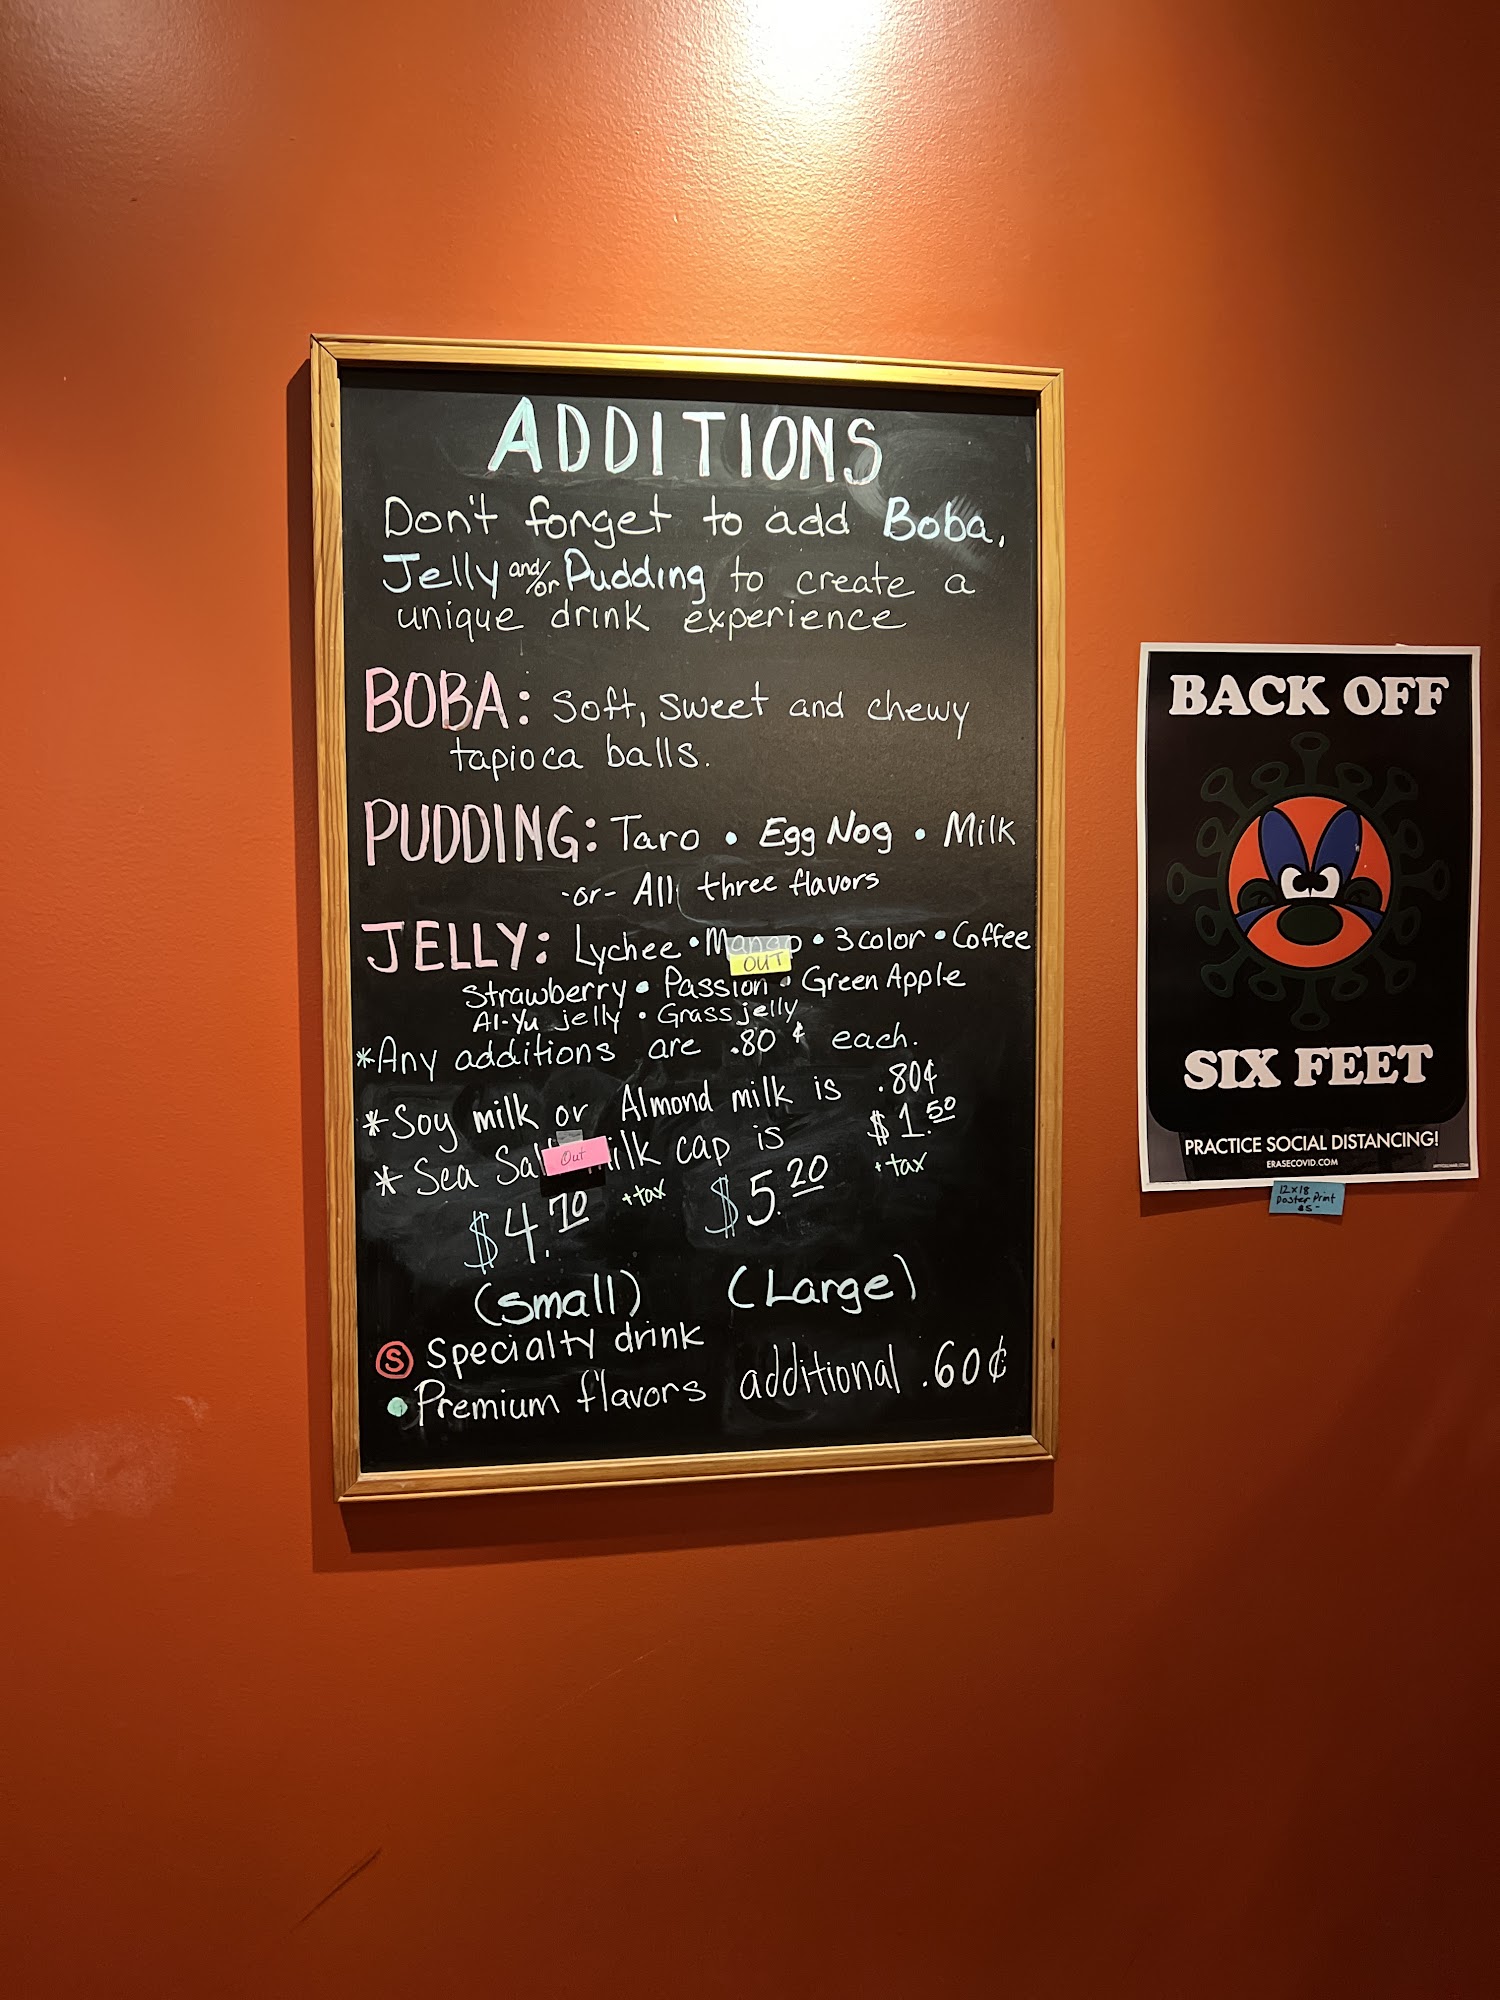 ADDITIONS
Don't forget to add Boba,
Jelly and/or Pudding to create a
unique drink experience
BOBA: Soft, sweet and chewy
tapioca balls.
PUDDING: Taro • Egg Nog • Milk
-or- All three flavors
JELLY: Lychee • Mango • 3 color • Coffee
OUT
Strawberry • Passion • Green Apple
Ai-Yu jelly • Grass jelly
*Any additions are .80¢ each.
*Soy milk or Almond milk is .80¢
*Sea Salt Milk cap is $1.50
Out
+tax
$4.70 +tax $5.20
(small) (Large)
Ⓢ Specialty drink
• Premium flavors additional .60¢
BACK OFF
SIX FEET
PRACTICE SOCIAL DISTANCING!
ERASECOVID.COM
12x18
Poster Print